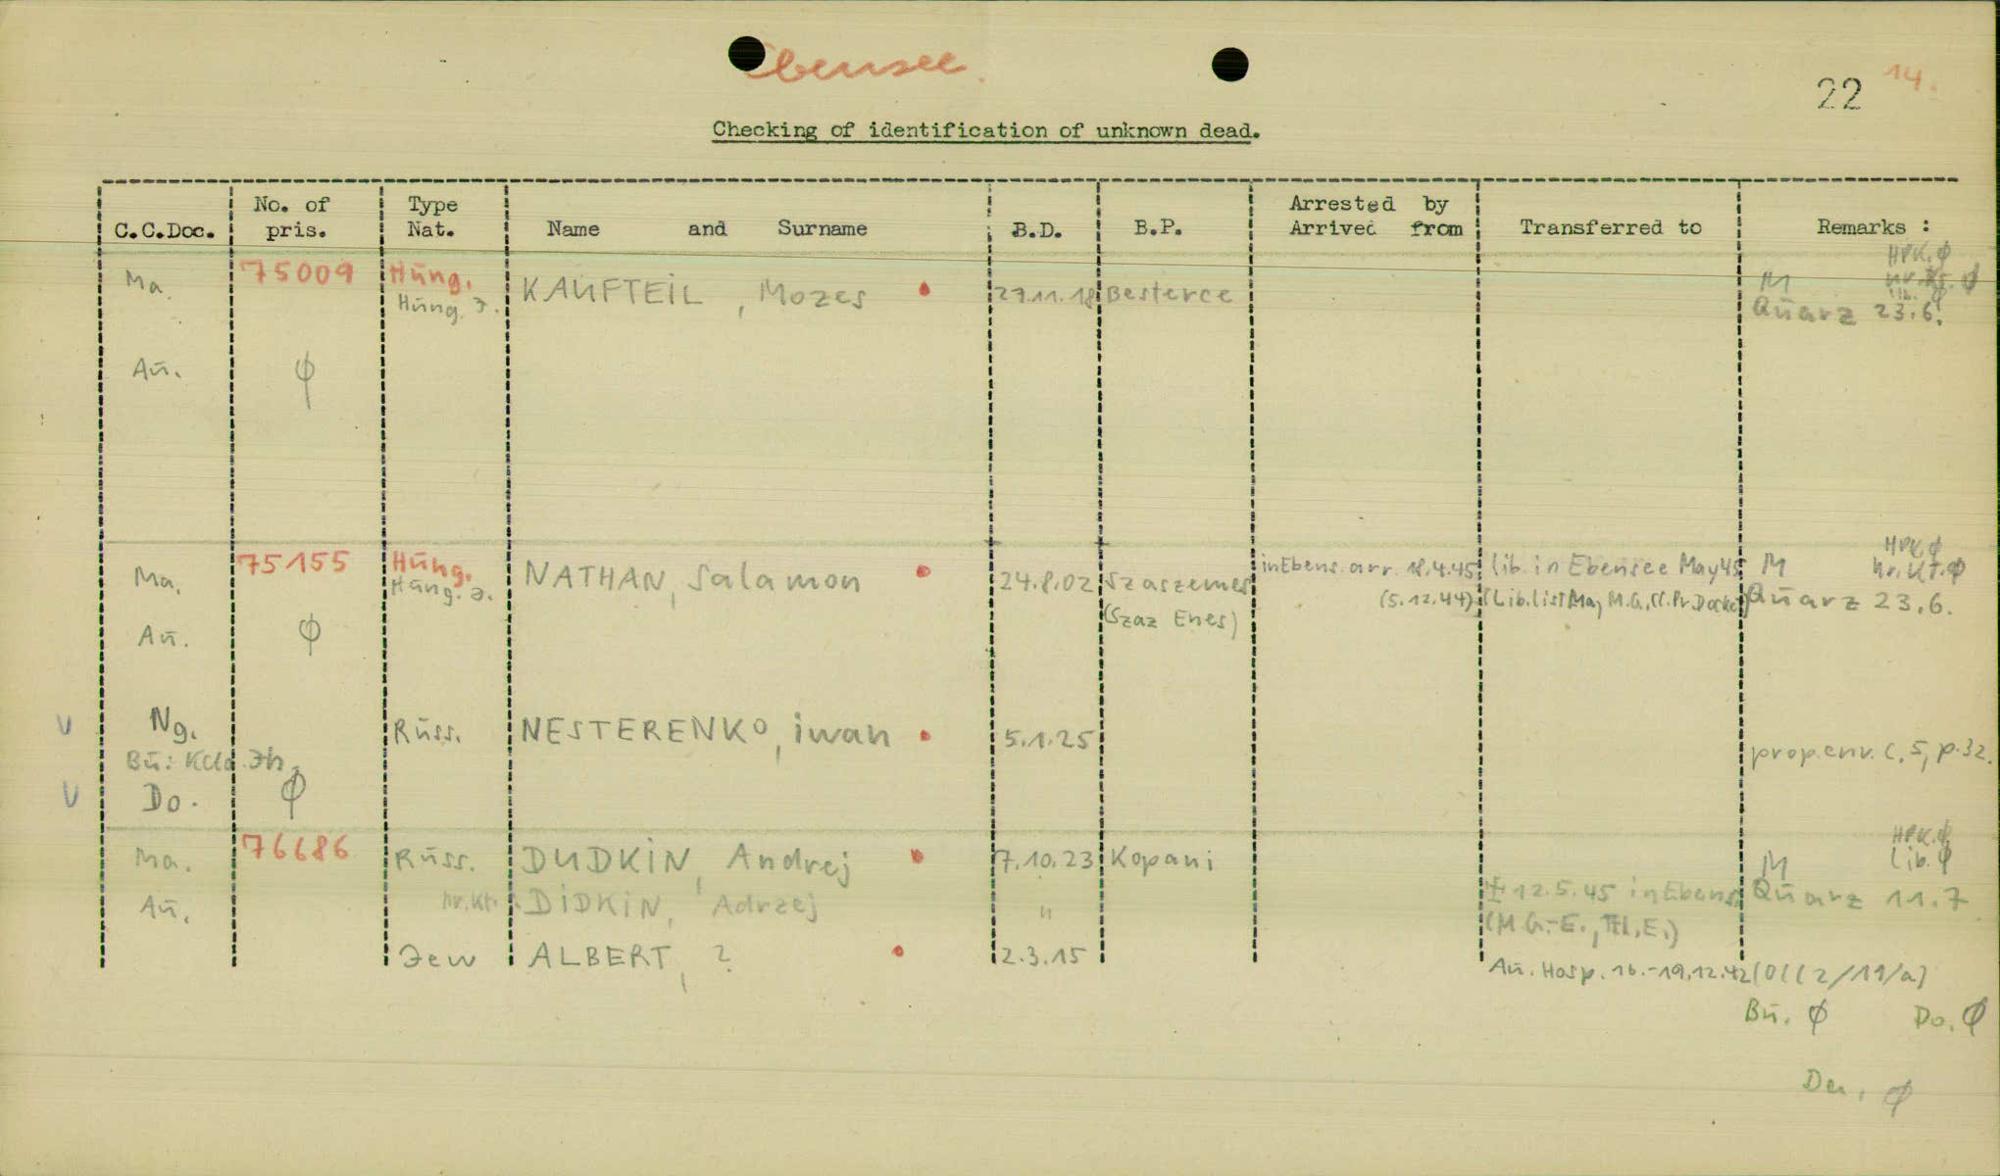 Ebensee
22 14.
Checking of identification of unknown dead.
C.C.Doc. No. of pris. Type Nat. Name and Surname B.D. B.P. Arrested by Arrived from Transferred to Remarks :
HPK. ϕ
Ma. 75009 Hŭng. KAUFTEIL, Mozes 27.11.18 Besterce M
Hŭng. J. Qŭarz 23.6.
Aŭ. ϕ
HPK. ϕ
Ma. 75155 Hŭng. NATHAN, Salamon 24.8.02 Szaszemes in Ebens. arr. 18.4.45 lib. in Ebensee May 45 M hr. Kt. ϕ
Hŭng. J. (Szaz Enes) (5.12.44) (Lib. list May M.G., Qŭarz 23.6.
Aŭ. ϕ
Ng. Rŭss. NESTERENKO, iwan 5.1.25
Bŭ: prop. env. C, 5, p. 32.
Do. ϕ
HPK. ϕ
Ma. 76686 Rŭss. DUDKIN, Andrej 7.10.23 Kopani M Lib. ϕ
Aŭ. hr. Kt. DIDKIN, Adrzej " ± 12.5.45 in Ebens. Qŭarz 11.7
(M.G.-E.,
Jew ALBERT, ? 2.3.15
Aŭ. Hosp. 16.-19.12.42 (OCC 2/11/a)
Bŭ. ϕ Do. ϕ
Da. ϕ